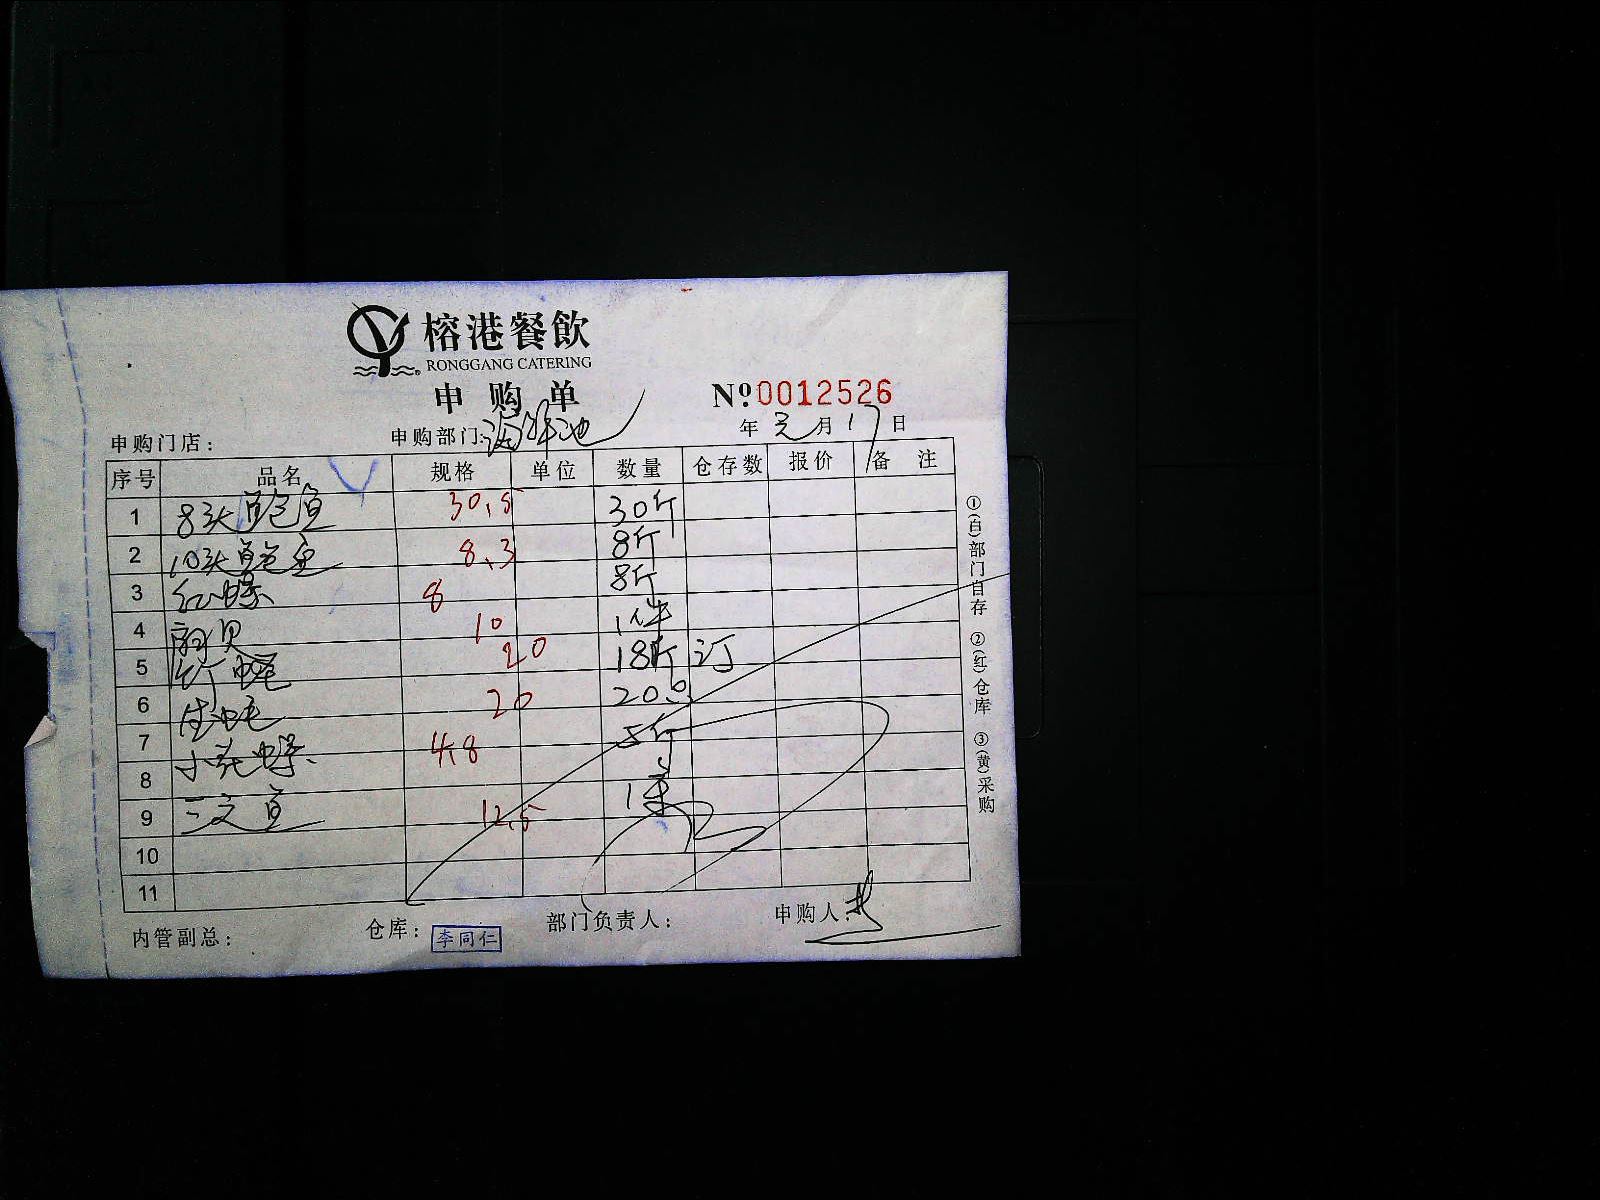 榕港餐飲
RONGGANG CATERING
申购单
№0012526
申购门店： 申购部门：海鲜池 年 元 月 17 日
序号 品名 规格 单位 数量 仓存数 报价 备注
1 8头鲍鱼 30.5 30斤
2 10头鲍鱼 8.3 8斤
3 红螺 8 8斤
4 扇贝 10 1件
5 竹蛏 20 18斤 订
6 生蚝 20 20只
7 小花螺 4.8 5斤
8
9 三文鱼 12.5 1条
10
11
内管副总： 仓库：李同仁 部门负责人： 申购人：
①(白)部门自存 ②(红)仓库 ③(黄)采购